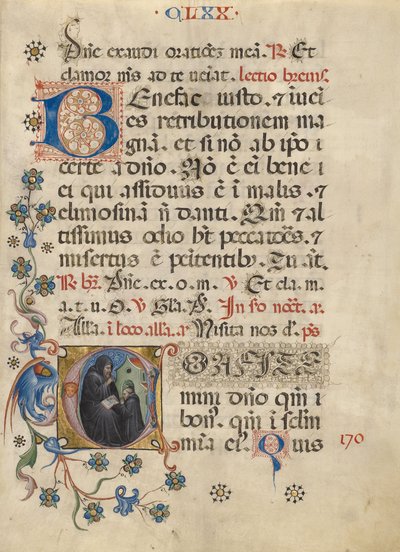 · CLXX ·
Dñe exaudi orationeȝ meã. R Et
clamor m̃s ad te ueniat. lectio breuis.
Benefac iusto. et iueĩ
es retributionem ma
gnã. et si nõ ab ipõ i
certe a dño. Nõ ẽ ei bene i
ei qui assiduus ẽ i malis. et
elimosinã ñ danti. Qm̃ et al
tissimus odio h̃t peccatoẽs. et
misertus ẽ penitentibꝫ. Tu aũt.
Dñe. ex. o. m. V Et cla. m
a. t. u. D. V Gl̃a. P̃. In
Alla. i loco alla. a Nisita noȝ d.
Confite
mini dño qm̃ i
bonꝰ. qm̃ i sclm̃
mĩa eiꝰ. Quis
170